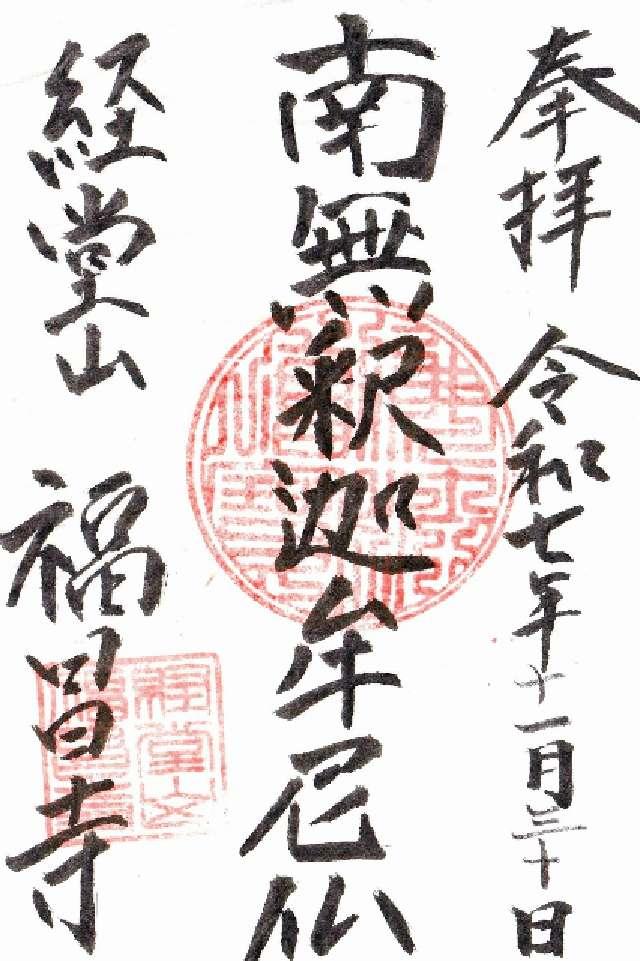 奉拝 令和七年十一月三十日
南無釈迦牟尼仏
経堂山 福昌寺